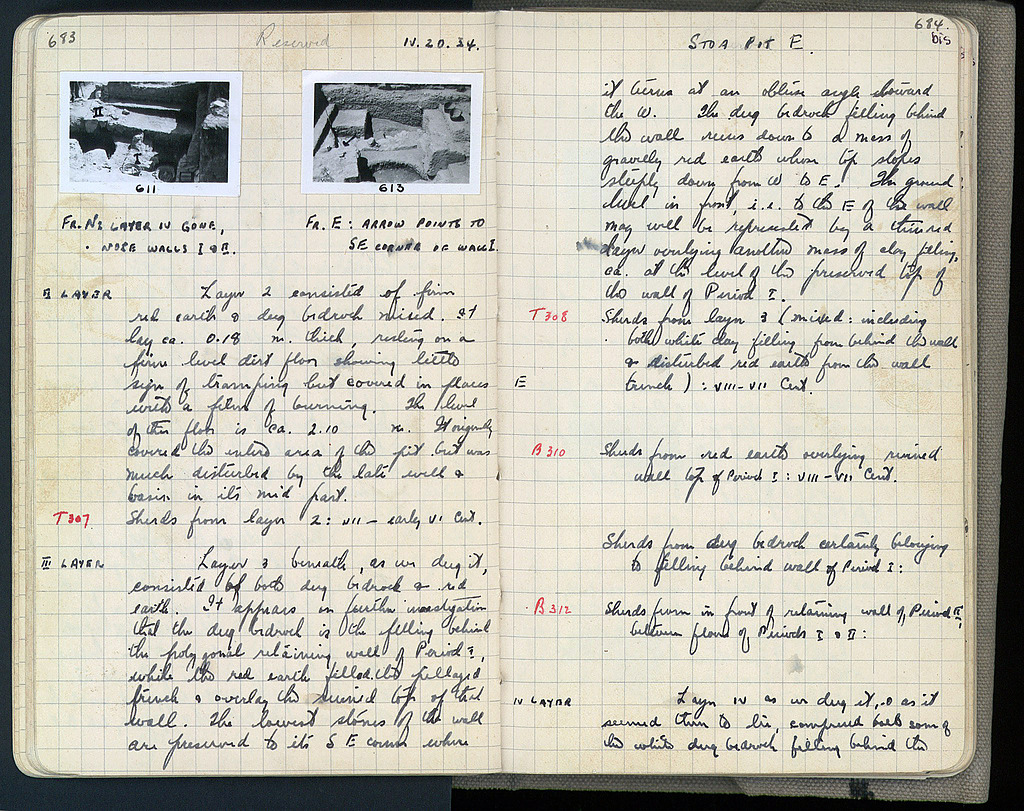 683
Reserved
IV. 20. 34.
II
I
611
613
FR. N: LAYER IV GONE,
NOTE WALLS I & II.
FR. E: ARROW POINTS TO
SE CORNER OF WALL I.
II LAYER
Layer 2 consisted of firm
red earth & dug bedrock mixed. It
lay ca. 0.18 m. thick, resting on a
firm level dirt floor showing little
sign of tramping but covered in places
with a film of burning. The level
of this floor is ca. 2.10 m. It originally
covered the entire area of the pit but was
much disturbed by the late well &
basin in its mid part.
T307
Sherds from layer 2: VII – early VI Cent.
III LAYER
Layer 3 beneath, as we dug it,
consisted of both dug bedrock & red
earth. It appears on further investigation
that the dug bedrock is the filling behind
the polygonal retaining wall of Period I,
while the red earth filled the pillaged
trench & overlay the ruined top of that
wall. The lowest stones of the wall
are preserved to its SE corner where
684
bis
STOA PIT E.
it turns at an obtuse angle toward
the W. The dug bedrock filling behind
this wall runs down to a mass of
gravelly red earth whose top slopes
steeply down from W to E. The ground
level in front, i.e. to the E of the wall
may well be represented by a thin red
layer overlying another mass of clay filling,
ca. at the level of the preserved top of
the wall of Period I.
T308
Sherds from layer 3 (mixed: including
both white clay filling from behind the wall
& disturbed red earth from the wall
E
trench): VIII–VII Cent.
B310
Sherds from red earth overlying ruined
wall top of Period I: VIII–VII Cent.
Sherds from dug bedrock certainly belonging
to filling behind wall of Period I:
B312
Sherds from in front of retaining wall of Period II,
between floors of Periods I & II:
IV LAYER
Layer IV as we dug it, & as it
seemed then to lie, comprised both some of
the white dug bedrock filling behind the